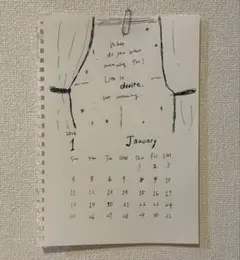 What
do you want
meaning for?
Life is
desire,
not meaning.
2026
1 January
Sun Mon Tue Wed Thu Fri Sat
1 2 3
4 5 6 7 8 9 10
11 12 13 14 15 16 17
18 19 20 21 22 23 24
25 26 27 28 29 30 31